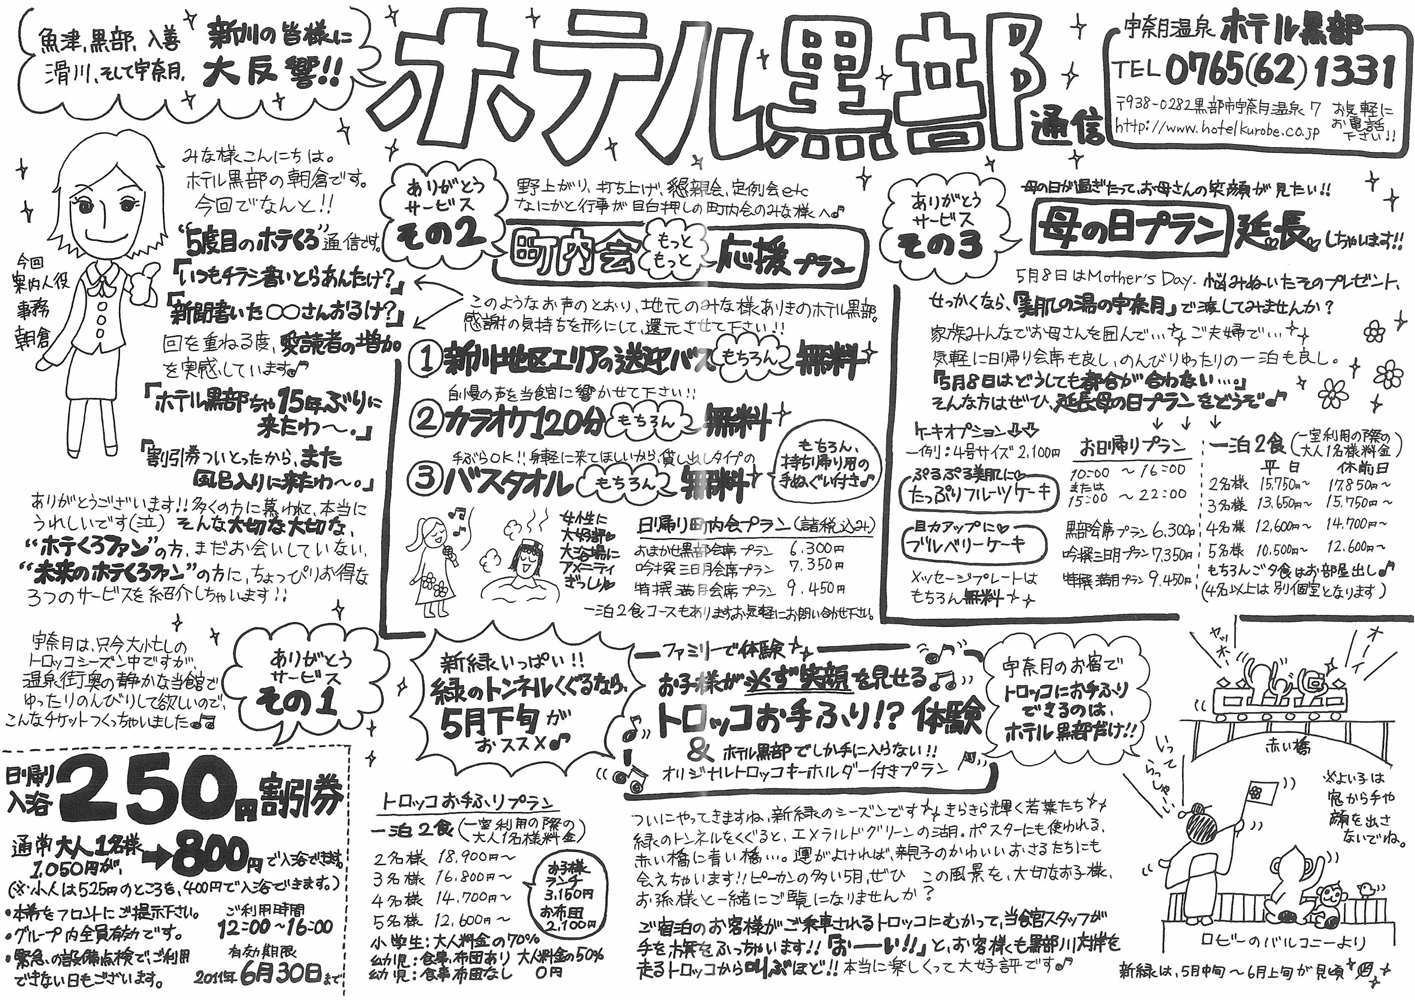 魚津、黒部、入善
滑川、そして宇奈月、
新川の皆様に
大反響!!
ホテル黒部
通信
宇奈月温泉 ホテル黒部
TEL 0765(62)1331
〒938-0282黒部市宇奈月温泉7
http://www.hotelkurobe.co.jp
お気軽に
お電話
下さい!!
今回
案内人役
事務
朝倉
みな様こんにちは。
ホテル黒部の朝倉です。
今回でなんと!!
"5度目のホテくろ"通信です。
「いつもチラシ書いとらあんたけ?」
「新聞書いた〇〇さんおるけ?」
回を重ねる度、愛読者の増加
を実感しています♪
「ホテル黒部ちゃ15年ぶりに
来たわ～。」
「割引券ついとったから、また
風呂入りに来たわ～。」
ありがとうございます!!多くの方に慕われて、本当に
うれしいです(泣) そんな大切な大切な、
"ホテくろファン"の方、まだお会いしていない、
"未来のホテくろファン"の方に、ちょっぴりお得な
3つのサービスを紹介しちゃいます!!
宇奈月は、只今大忙しの
トロッコシーズン中ですが、
温泉街奥の静かな当館で
ゆったりのんびりして欲しいので、
こんなチケットつくっちゃいました♫
ありがとう
サービス
その1
日帰り
入浴
250円割引券
通常大人1名様
1,050円が、
➡800円で入浴できます。
(※小人は525円のところを、400円で入浴できます。)
・本券をフロントにご提示下さい。
・グループ内全員有効です。
・緊急の設備点検でご利用
できない日もございます。
ご利用時間
12:00～16:00
有効期限
2011年6月30日まで
ありがとう
サービス
その2
野上がり、打ち上げ、懇親会、定例会etc
なにかと行事が目白押しの町内会のみな様へ♪
町内会
もっと
もっと
応援プラン
このようなお声のとおり、地元のみな様ありきのホテル黒部。
感謝の気持ちを形にして、還元させて下さい!!
①新川地区エリアの送迎バス もちろん 無料
自慢の声を当館に響かせて下さい!!
②カラオケ120分 もちろん 無料
手ぶらOK!!身軽に来てほしいから、貸し出しタイプの
③バスタオル もちろん 無料
もちろん、
持ち帰り用の
手ぬぐい付き♪
女性に
大好評
大浴場に
アメニティ
ぎっしり
日帰り町内会プラン(諸税込み)
おまかせ黒部会席プラン 6.300円
吟撰三日月会席プラン 7.350円
特撰満月会席プラン 9.450円
一泊2食コースもあります。お気軽にお問い合わせ下さい。
ありがとう
サービス
その3
母の日が過ぎたって、お母さんの笑顔が見たい!!
母の日プラン延長しちゃいます!!
5月8日はMother's Day. 悩みぬいたそのプレゼント、
せっかくなら、「美肌の湯の宇奈月」で渡してみませんか?
家族みんなでお母さんを囲んで…、ご夫婦で…
気軽に日帰り会席も良し、のんびりゆったりの一泊も良し。
「5月8日はどうしても都合が合わない…。」
そんな方はぜひ、延長母の日プランをどうぞ♪
ケーキオプション
一例):4号サイズ2.100円
ぷるぷる美肌に
たっぷりフルーツケーキ
目力アップに
ブルベリーケーキ
メッセージプレートは
もちろん無料
お日帰りプラン
10:00 ～16:00
または
15:00 ～22:00
黒部会席プラン6.300円
吟撰三日月プラン7.350円
特撰満月プラン9.450円
一泊2食(一室利用の際の大人1名様料金)
平日 休前日
2名様 15.750～ 17.850～
3名様 13.650～ 15.750～
4名様 12.600～ 14.700～
5名様 10.500～ 12.600～
もちろんご夕食はお部屋出し♪
(4名以上は別個室となります)
新緑いっぱい!!
緑のトンネルくぐるなら、
5月下旬が
おススメ♪
ファミリーで体験
お子様が必ず笑顔を見せる♫
トロッコお手ふり!?体験
& ホテル黒部でしか手に入らない!!
オリジナルトロッコキーホルダー付きプラン
宇奈月のお宿で
トロッコにお手ふり
できるのは、
ホテル黒部だけ!!
トロッコお手ふりプラン
一泊2食(一室利用の際の大人1名様料金)
2名様 18.900円～
3名様 16.800円～
4名様 14.700円～
5名様 12.600円～
小学生:大人料金の70%
幼児:食事、布団あり 大人料金の50%
幼児:食事布団なし 0円
お子様
ランチ
3,150円
お布団
2,100円
ついにやってきますね、新緑のシーズンです きらきら輝く若葉たち
緑のトンネルをくぐると、エメラルドグリーンの湖。ポスターにも使われる、
赤い橋に青い橋…。運がよければ、親子のかわいいおさるたちにも
会えちゃいます!!ピーカンの多い5月、ぜひ この風景を、大切なお子様、
お孫様と一緒にご覧になりませんか?
ご宿泊のお客様がご乗車されるトロッコにむかって、当館スタッフが
手を旗をふっちゃいます!!「おーい!!」と、お客様も黒部川対岸を
走るトロッコから叫ぶほど!!本当に楽しくって大好評です♪
ヤッホー
オーイ
赤い橋
いって
らっしゃい
※よい子は
窓から手や
顔を出さ
ないでね。
ロビーのバルコニーより
新緑は、5月中旬～6月上旬が見頃